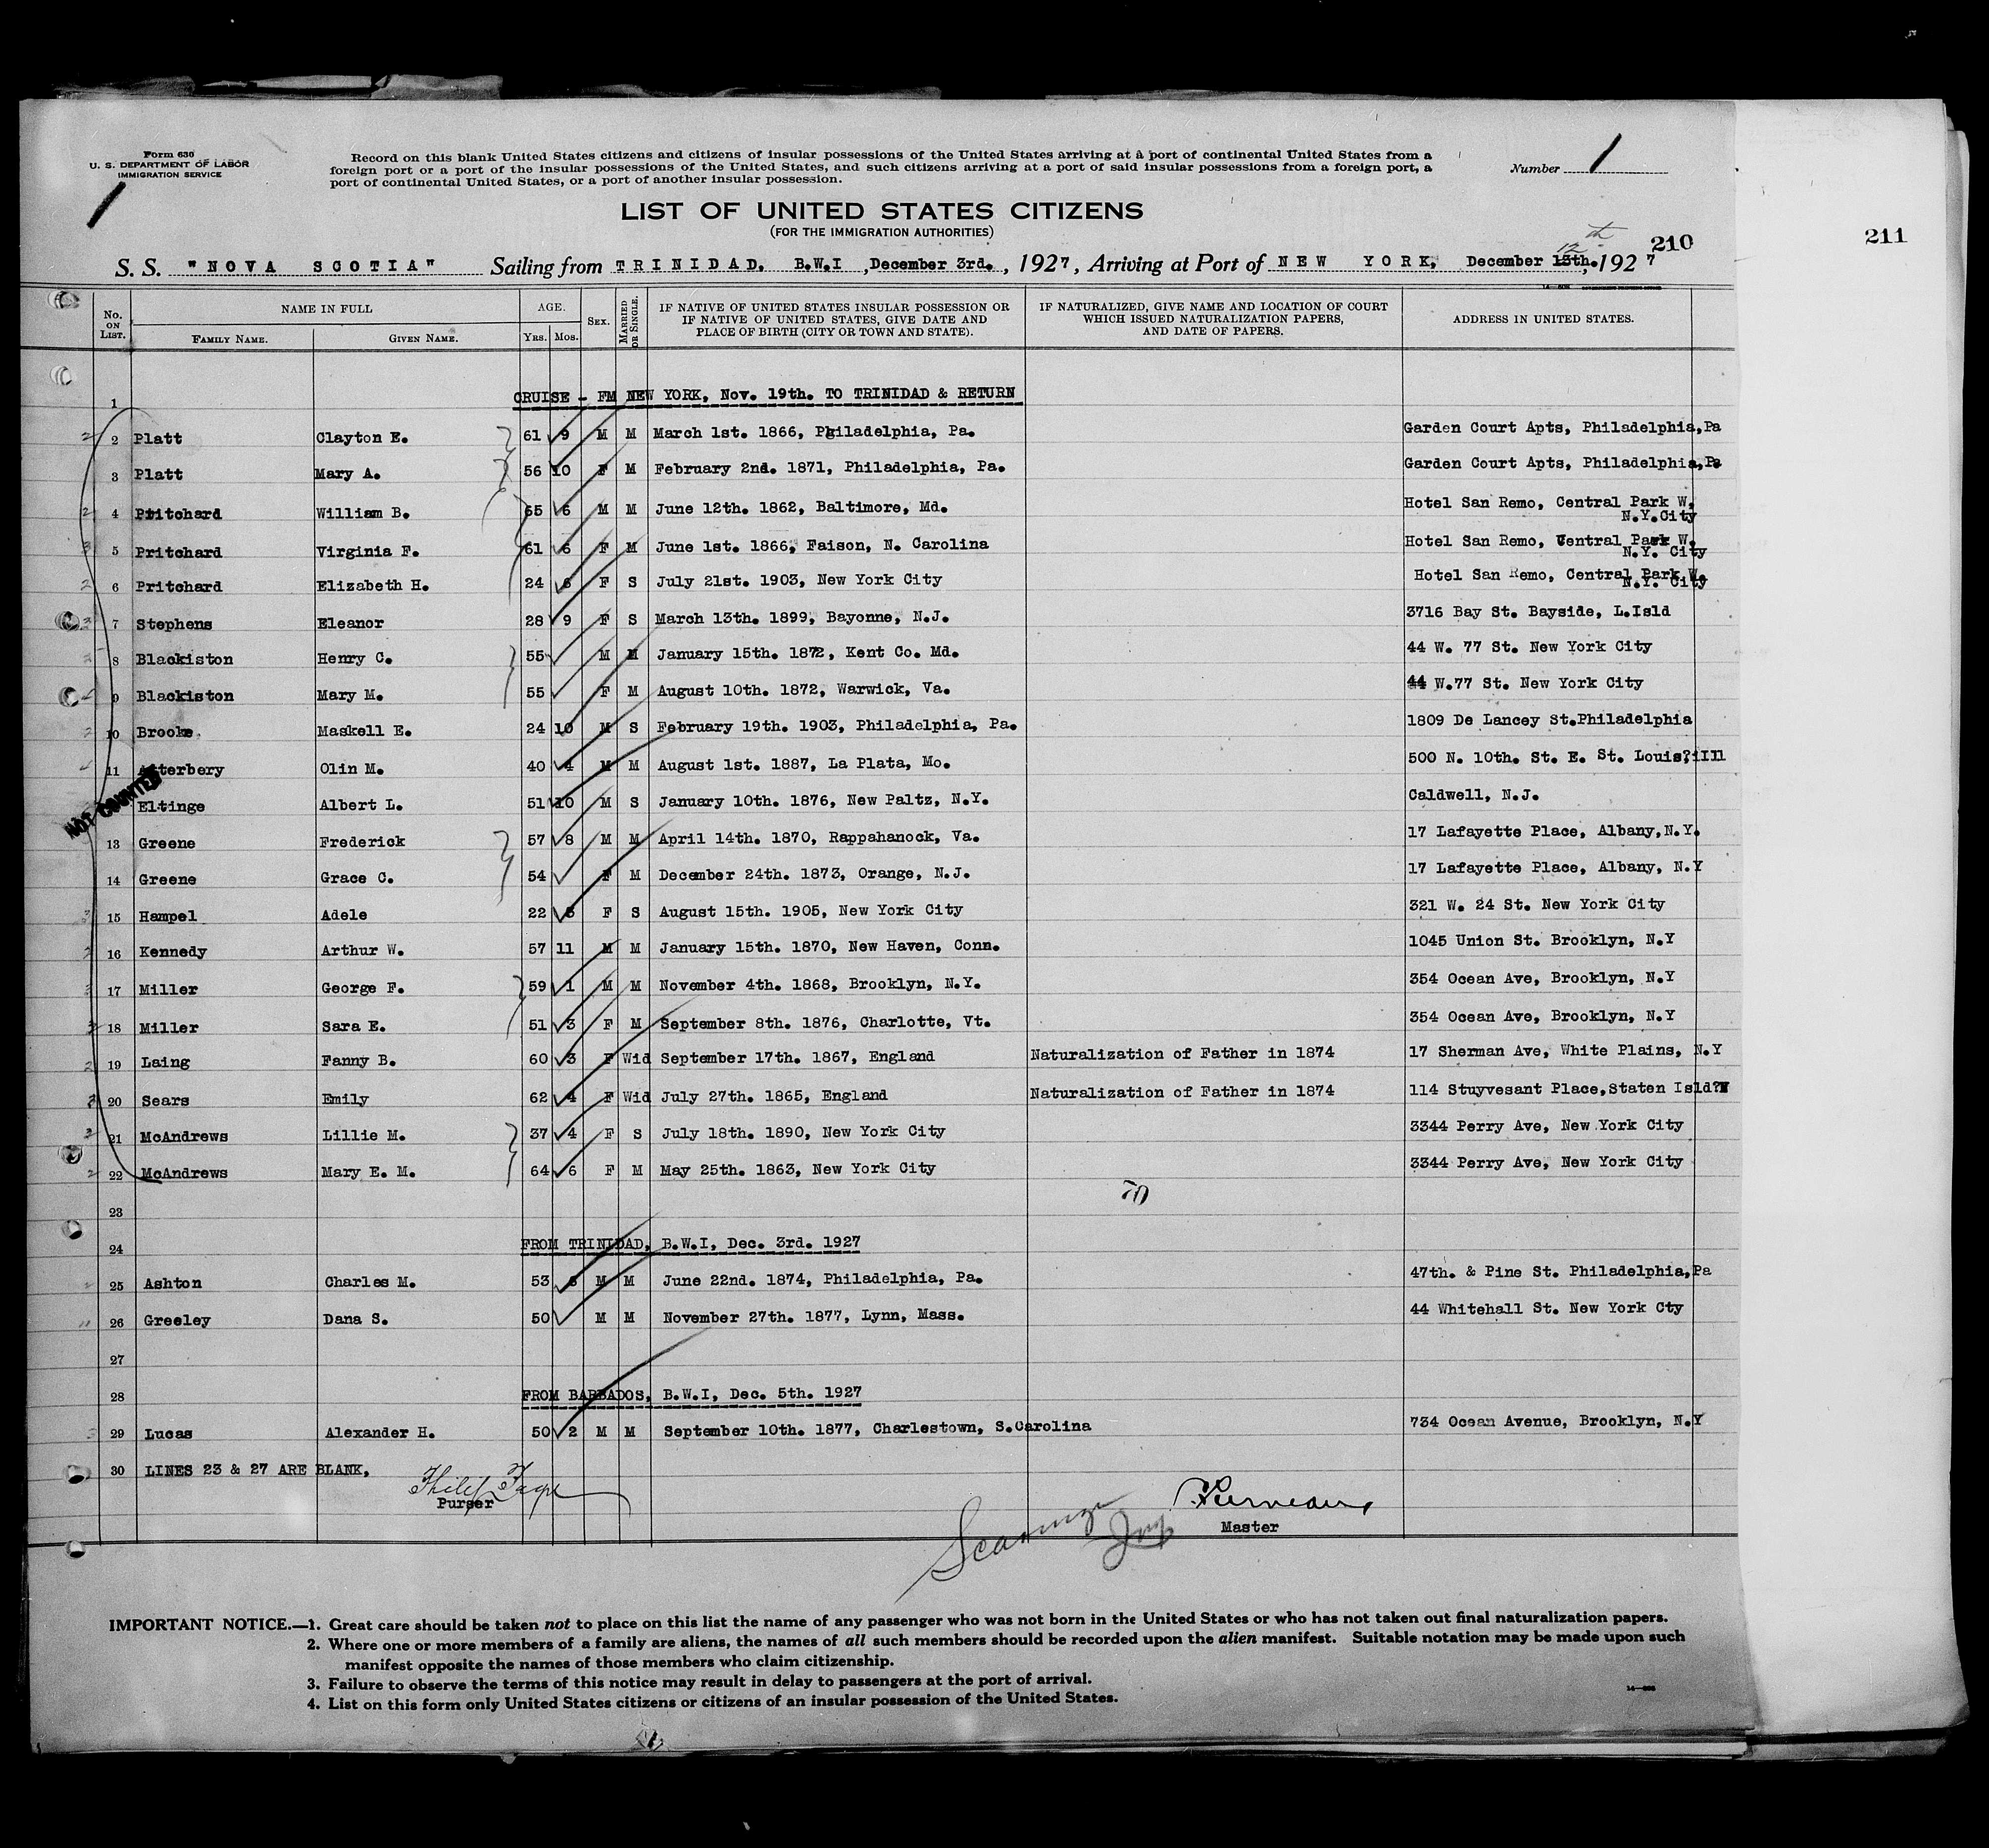 Form 630
U. S. DEPARTMENT OF LABOR
IMMIGRATION SERVICE
Record on this blank United States citizens and citizens of insular possessions of the United States arriving at a port of continental United States from a
foreign port or a port of the insular possessions of the United States, and such citizens arriving at a port of said insular possessions from a foreign port, a
port of continental United States, or a port of another insular possession.
Number 1
1
LIST OF UNITED STATES CITIZENS
(FOR THE IMMIGRATION AUTHORITIES)
210
211
S. S. "NOVA SCOTIA" Sailing from TRINIDAD, B.W.I, December 3rd., 1927, Arriving at Port of NEW YORK, December 13th., 1927
12th
No. ON LIST. NAME IN FULL FAMILY NAME. GIVEN NAME. AGE. YRS. MOS. SEX. MARRIED OR SINGLE. IF NATIVE OF UNITED STATES INSULAR POSSESSION OR IF NATIVE OF UNITED STATES, GIVE DATE AND PLACE OF BIRTH (CITY OR TOWN AND STATE). IF NATURALIZED, GIVE NAME AND LOCATION OF COURT WHICH ISSUED NATURALIZATION PAPERS, AND DATE OF PAPERS. ADDRESS IN UNITED STATES.
1 CRUISE - FM NEW YORK, Nov. 19th. TO TRINIDAD & RETURN
2 Platt Clayton E. 61 9 M M March 1st. 1866, Philadelphia, Pa. Garden Court Apts, Philadelphia,Pa
3 Platt Mary A. 56 10 F M February 2nd. 1871, Philadelphia, Pa. Garden Court Apts, Philadelphia,Pa
4 Pritchard William B. 65 6 M M June 12th. 1862, Baltimore, Md. Hotel San Remo, Central Park W, N.Y.City
5 Pritchard Virginia F. 61 6 F M June 1st. 1866, Faison, N. Carolina Hotel San Remo, Central Park W. N.Y. City
6 Pritchard Elizabeth H. 24 6 F S July 21st. 1903, New York City Hotel San Remo, Central Park W. N.Y. City
7 Stephens Eleanor 28 9 F S March 13th. 1899, Bayonne, N.J. 3716 Bay St. Bayside, L.Isld
8 Blackiston Henry C. 55 M M January 15th. 1872, Kent Co. Md. 44 W. 77 St. New York City
9 Blackiston Mary M. 55 F M August 10th. 1872, Warwick, Va. 44 W.77 St. New York City
10 Brooke Maskell E. 24 10 M S February 19th. 1903, Philadelphia, Pa. 1809 De Lancey St.Philadelphia
11 Atterbery Olin M. 40 4 M M August 1st. 1887, La Plata, Mo. 500 N. 10th. St. E. St. Louis?iIll
NOT COUNTED
Eltinge Albert L. 51 10 M S January 10th. 1876, New Paltz, N.Y. Caldwell, N.J.
13 Greene Frederick 57 8 M M April 14th. 1870, Rappahanock, Va. 17 Lafayette Place, Albany,N.Y.
14 Greene Grace C. 54 F M December 24th. 1873, Orange, N.J. 17 Lafayette Place, Albany, N.Y
15 Hampel Adele 22 3 F S August 15th. 1905, New York City 321 W. 24 St. New York City
16 Kennedy Arthur W. 57 11 M M January 15th. 1870, New Haven, Conn. 1045 Union St. Brooklyn, N.Y
17 Miller George F. 59 1 M M November 4th. 1868, Brooklyn, N.Y. 354 Ocean Ave, Brooklyn, N.Y
18 Miller Sara E. 51 3 F M September 8th. 1876, Charlotte, Vt. 354 Ocean Ave, Brooklyn, N.Y
19 Laing Fanny B. 60 3 F Wid September 17th. 1867, England Naturalization of Father in 1874 17 Sherman Ave, White Plains, N.Y
20 Sears Emily 62 4 F Wid July 27th. 1865, England Naturalization of Father in 1874 114 Stuyvesant Place,Staten Isld?N
21 McAndrews Lillie M. 37 4 F S July 18th. 1890, New York City 3344 Perry Ave, New York City
22 McAndrews Mary E. M. 64 6 F M May 25th. 1863, New York City 3344 Perry Ave, New York City
23
24 FROM TRINIDAD, B.W.I, Dec. 3rd. 1927
25 Ashton Charles M. 53 6 M M June 22nd. 1874, Philadelphia, Pa. 47th. & Pine St. Philadelphia,Pa
26 Greeley Dana S. 50 M M November 27th. 1877, Lynn, Mass. 44 Whitehall St. New York Cty
27
28 FROM BARBADOS, B.W.I, Dec. 5th. 1927
29 Lucas Alexander H. 50 2 M M September 10th. 1877, Charlestown, S.Carolina 734 Ocean Avenue, Brooklyn, N.Y
30 LINES 23 & 27 ARE BLANK,
Purser
Master
IMPORTANT NOTICE.—1. Great care should be taken not to place on this list the name of any passenger who was not born in the United States or who has not taken out final naturalization papers.
2. Where one or more members of a family are aliens, the names of all such members should be recorded upon the alien manifest. Suitable notation may be made upon such
manifest opposite the names of those members who claim citizenship.
3. Failure to observe the terms of this notice may result in delay to passengers at the port of arrival.
4. List on this form only United States citizens or citizens of an insular possession of the United States.